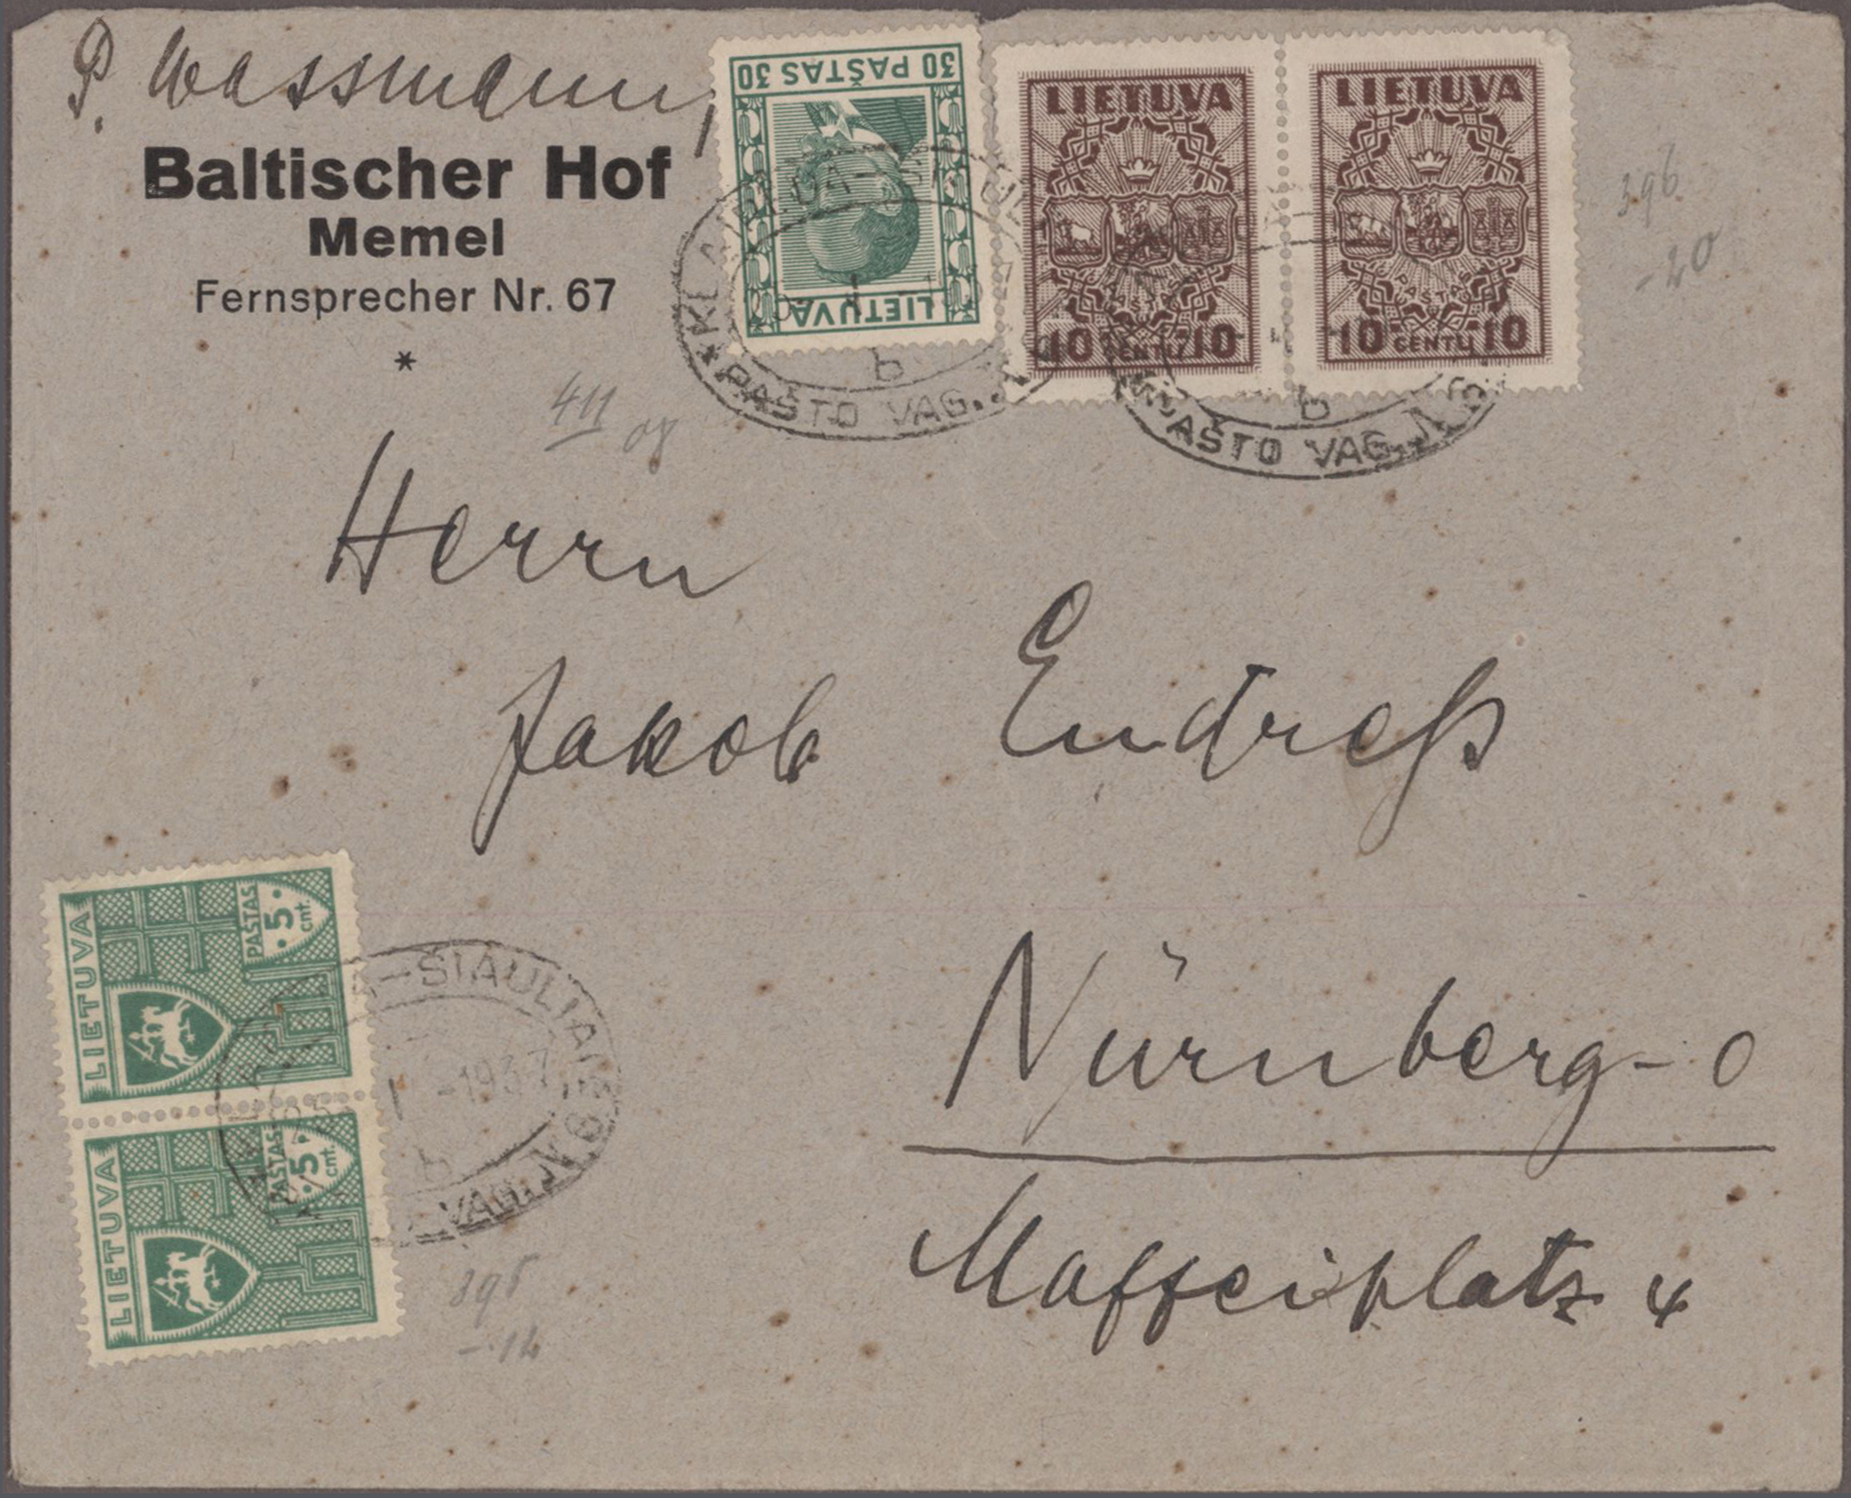 P. Wassmann,
Baltischer Hof
Memel
Fernsprecher Nr. 67
*
30 PAŠTAS 30
LIETUVA
LIETUVA
10 CENTŲ 10
LIETUVA
10 CENTŲ 10
PAŠTO VAG.
b
PAŠTO VAG. N
b
396
-20
411
08
Herrn
Jakob Endreß
Nürnberg-O
Maffeiplatz 4
LIETUVA
PAŠTAS
5
cnt.
LIETUVA
PAŠTAS
5
cnt.
-ŠIAULIAI
-1937
b
VAG. N